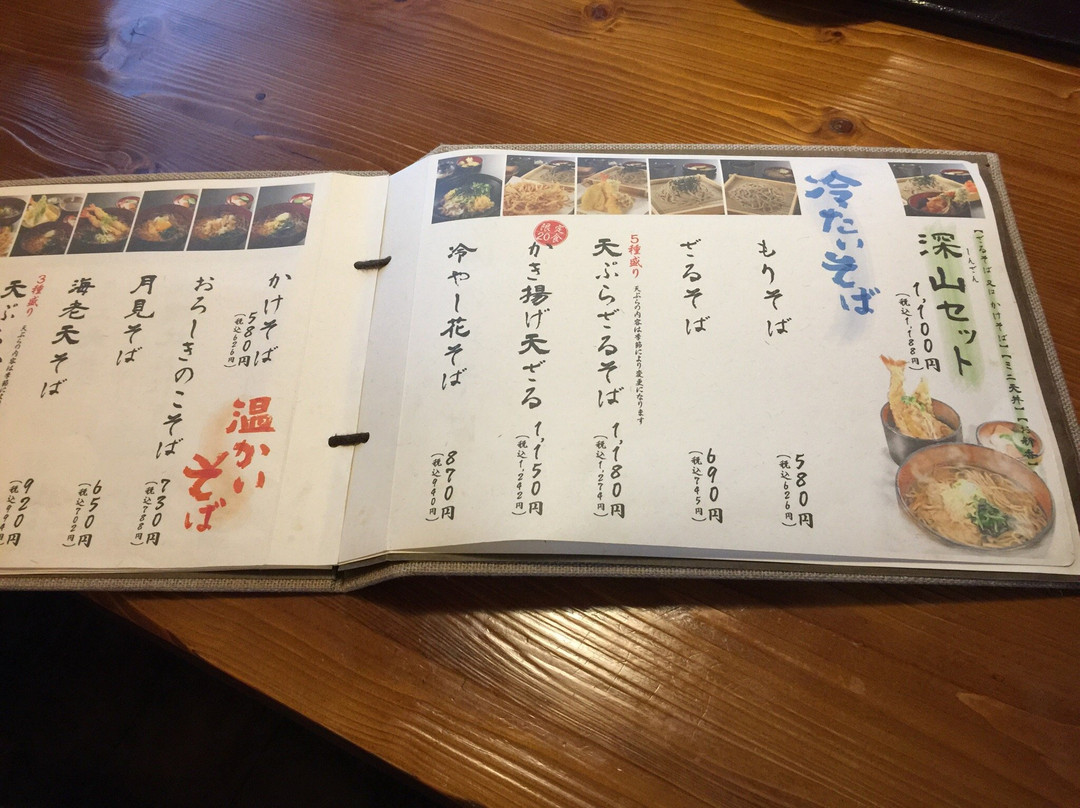 深山セット
しんでん
【ざるそば又はかけそば】【ミニ天丼】
1,100円
(税込1,188円)
冷たいそば
もりそば
580円
(税込626円)
ざるそば
690円
(税込745円)
5種盛り
天ぷらの内容は季節により変更になります
天ぷらざるそば
1,180円
(税込1,274円)
限定
20食
かき揚げ天ざる
1,150円
(税込1,242円)
冷やし花そば
870円
(税込940円)
温かいそば
かけそば
580円
(税込626円)
おろしきのこそば
730円
(税込788円)
月見そば
650円
(税込702円)
海老天そば
920円
3種盛り
天ぷらの内容は季節により
天ぷら